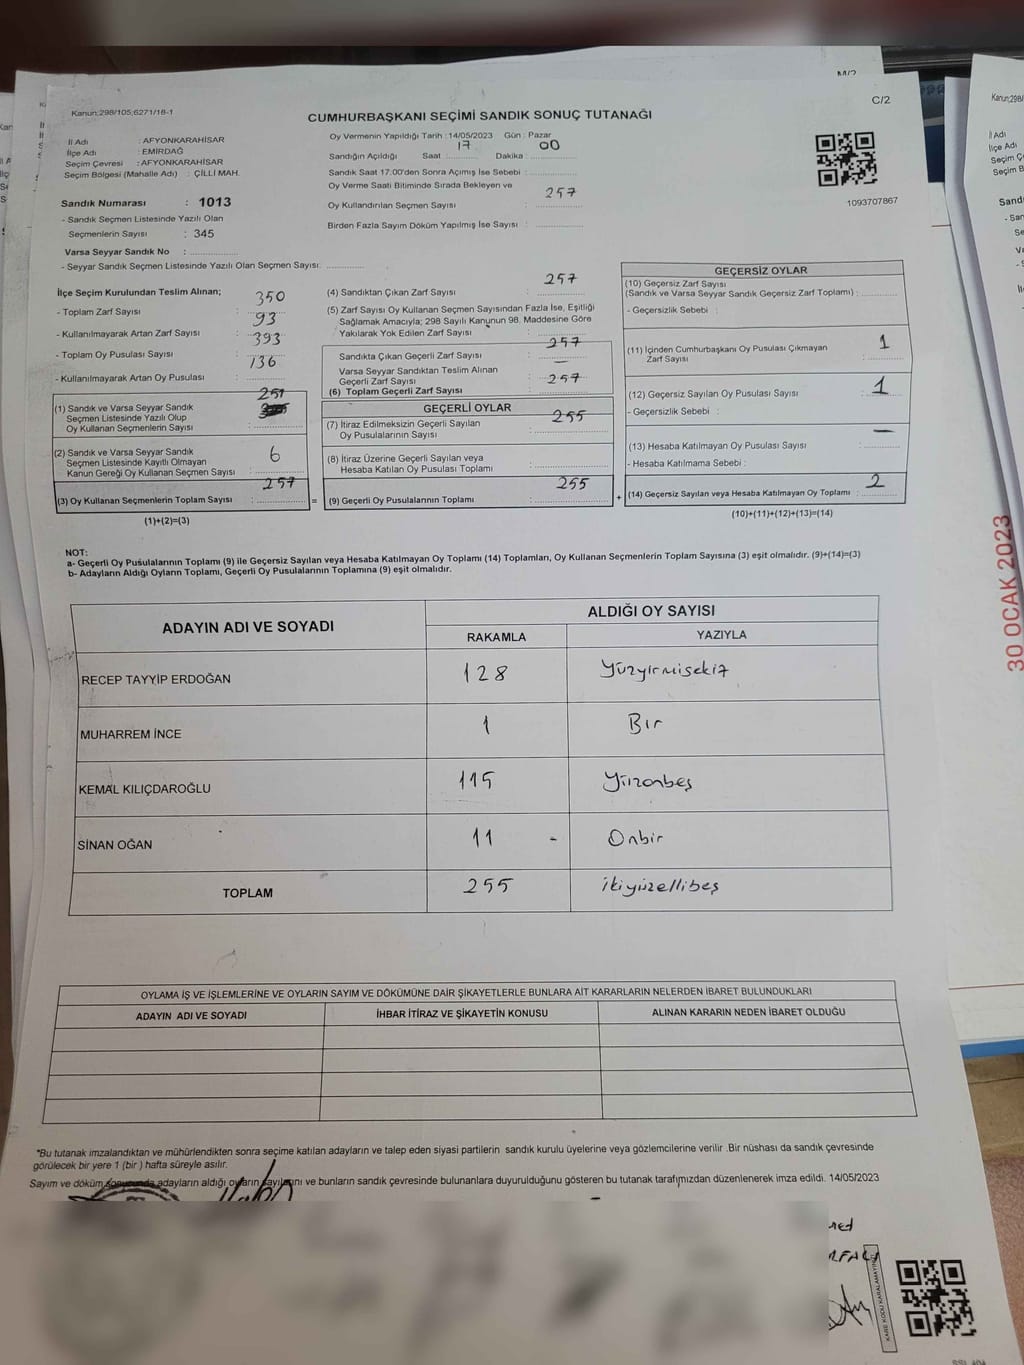 C/2
Kanun:298/105;6271/18-1
CUMHURBAŞKANI SEÇİMİ SANDIK SONUÇ TUTANAĞI
İl Adı : AFYONKARAHİSAR
İlçe Adı : EMİRDAĞ
Seçim Çevresi : AFYONKARAHİSAR
Seçim Bölgesi (Mahalle Adı) : ÇİLLİ MAH.
Sandık Numarası : 1013
- Sandık Seçmen Listesinde Yazılı Olan
Seçmenlerin Sayısı : 345
Varsa Seyyar Sandık No :
- Seyyar Sandık Seçmen Listesinde Yazılı Olan Seçmen Sayısı:
Oy Vermenin Yapıldığı Tarih : 14/05/2023 Gün : Pazar
Sandığın Açıldığı Saat 17 Dakika 00
Sandık Saat 17.00'den Sonra Açımış İse Sebebi :
Oy Verme Saati Bitiminde Sırada Bekleyen ve
Oy Kullandırılan Seçmen Sayısı : 257
Birden Fazla Sayım Döküm Yapılmış İse Sayısı :
1093707867
İlçe Seçim Kurulundan Teslim Alınan;
- Toplam Zarf Sayısı : 350
- Kullanılmayarak Artan Zarf Sayısı : 93
- Toplam Oy Pusulası Sayısı : 393
- Kullanılmayarak Artan Oy Pusulası : 136
(1) Sandık ve Varsa Seyyar Sandık
Seçmen Listesinde Yazılı Olup
Oy Kullanan Seçmenlerin Sayısı : 251
(2) Sandık ve Varsa Seyyar Sandık
Seçmen Listesinde Kayıtlı Olmayan
Kanun Gereği Oy Kullanan Seçmen Sayısı : 6
(3) Oy Kullanan Seçmenlerin Toplam Sayısı : 257
(1)+(2)=(3)
=
(4) Sandıktan Çıkan Zarf Sayısı : 257
(5) Zarf Sayısı Oy Kullanan Seçmen Sayısından Fazla İse, Eşitliği
Sağlamak Amacıyla; 298 Sayılı Kanunun 98. Maddesine Göre
Yakılarak Yok Edilen Zarf Sayısı :
Sandıkta Çıkan Geçerli Zarf Sayısı : 257
Varsa Seyyar Sandıktan Teslim Alınan
Geçerli Zarf Sayısı : —
(6) Toplam Geçerli Zarf Sayısı : 257
GEÇERLİ OYLAR
(7) İtiraz Edilmeksizin Geçerli Sayılan
Oy Pusulalarının Sayısı : 255
(8) İtiraz Üzerine Geçerli Sayılan veya
Hesaba Katılan Oy Pusulası Toplamı :
(9) Geçerli Oy Pusulalarının Toplamı : 255
+
GEÇERSİZ OYLAR
(10) Geçersiz Zarf Sayısı
(Sandık ve Varsa Seyyar Sandık Geçersiz Zarf Toplamı) :
- Geçersizlik Sebebi :
(11) İçinden Cumhurbaşkanı Oy Pusulası Çıkmayan
Zarf Sayısı : 1
(12) Geçersiz Sayılan Oy Pusulası Sayısı : 1
- Geçersizlik Sebebi :
(13) Hesaba Katılmayan Oy Pusulası Sayısı : —
- Hesaba Katılmama Sebebi :
(14) Geçersiz Sayılan veya Hesaba Katılmayan Oy Toplamı : 2
(10)+(11)+(12)+(13)=(14)
NOT:
a- Geçerli Oy Pusulalarının Toplamı (9) ile Geçersiz Sayılan veya Hesaba Katılmayan Oy Toplamı (14) Toplamları, Oy Kullanan Seçmenlerin Toplam Sayısına (3) eşit olmalıdır. (9)+(14)=(3)
b- Adayların Aldığı Oyların Toplamı, Geçerli Oy Pusulalarının Toplamına (9) eşit olmalıdır.
ADAYIN ADI VE SOYADI
ALDIĞI OY SAYISI
RAKAMLA YAZIYLA
RECEP TAYYİP ERDOĞAN 128 Yüzyirmisekiz
MUHARREM İNCE 1 Bir
KEMAL KILIÇDAROĞLU 115 Yüzonbeş
SİNAN OĞAN 11 - Onbir
TOPLAM 255 ikiyüzellibeş
OYLAMA İŞ VE İŞLEMLERİNE VE OYLARIN SAYIM VE DÖKÜMÜNE DAİR ŞİKAYETLERLE BUNLARA AİT KARARLARIN NELERDEN İBARET BULUNDUKLARI
ADAYIN ADI VE SOYADI İHBAR İTİRAZ VE ŞİKAYETİN KONUSU ALINAN KARARIN NEDEN İBARET OLDUĞU
*Bu tutanak imzalandıktan ve mühürlendikten sonra seçime katılan adayların ve talep eden siyasi partilerin sandık kurulu üyelerine veya gözlemcilerine verilir .Bir nüshası da sandık çevresinde
görülecek bir yere 1 (bir ) hafta süreyle asılır.
Sayım ve döküm sonucunda adayların aldığı oyların sayılarını ve bunların sandık çevresinde bulunanlara duyurulduğunu gösteren bu tutanak tarafımızdan düzenlenerek imza edildi. 14/05/2023
KARE KODU KARALAMAYINIZ
30 OCAK 2023
Kanun:298/
İl Adı
İlçe Adı
Seçim